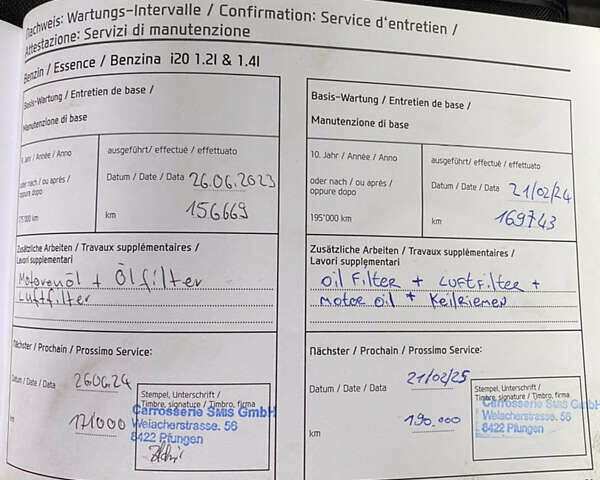 Nachweis: Wartungs-Intervalle / Confirmation: Service d'entretien /
Attestazione: Servizi di manutenzione
Benzin / Essence / Benzina i20 1.2l & 1.4l
Basis-Wartung / Entretien de base /
Manutenzione di base
Jahr / Année / Anno
oder nach / ou après /
oppure dopo
175'000 km
ausgeführt/ effectué / effettuato
Datum / Date / Data 26.06.2023
km 156669
Zusätzliche Arbeiten / Travaux supplémentaires /
Lavori supplementari
Motorenöl + Ölfilter
Luftfilter
Nächster / Prochain / Prossimo Service:
Datum / Date / Data 26.06.24
km 171000
Stempel, Unterschrift /
Timbre, signature / Timbro, firma
Carrosserie SMIS GmbH
Weiacherstrasse. 56
8422 Pfungen
Basis-Wartung / Entretien de base /
Manutenzione di base
10. Jahr / Année / Anno
oder nach / ou après /
oppure dopo
195'000 km
ausgeführt/ effectué / effettuato
Datum / Date / Data 21/02/24
km 169743
Zusätzliche Arbeiten / Travaux supplémentaires /
Lavori supplementari
Oil Filter + Luftfilter +
Motor oil + Keilriemen
Nächster / Prochain / Prossimo Service:
Datum / Date / Data 21/02/25
km 190.000
Stempel, Unterschrift /
Timbre, signature / Timbro, firma
Carrosserie SMIS GmbH
Weiacherstrasse. 56
8422 Pfungen